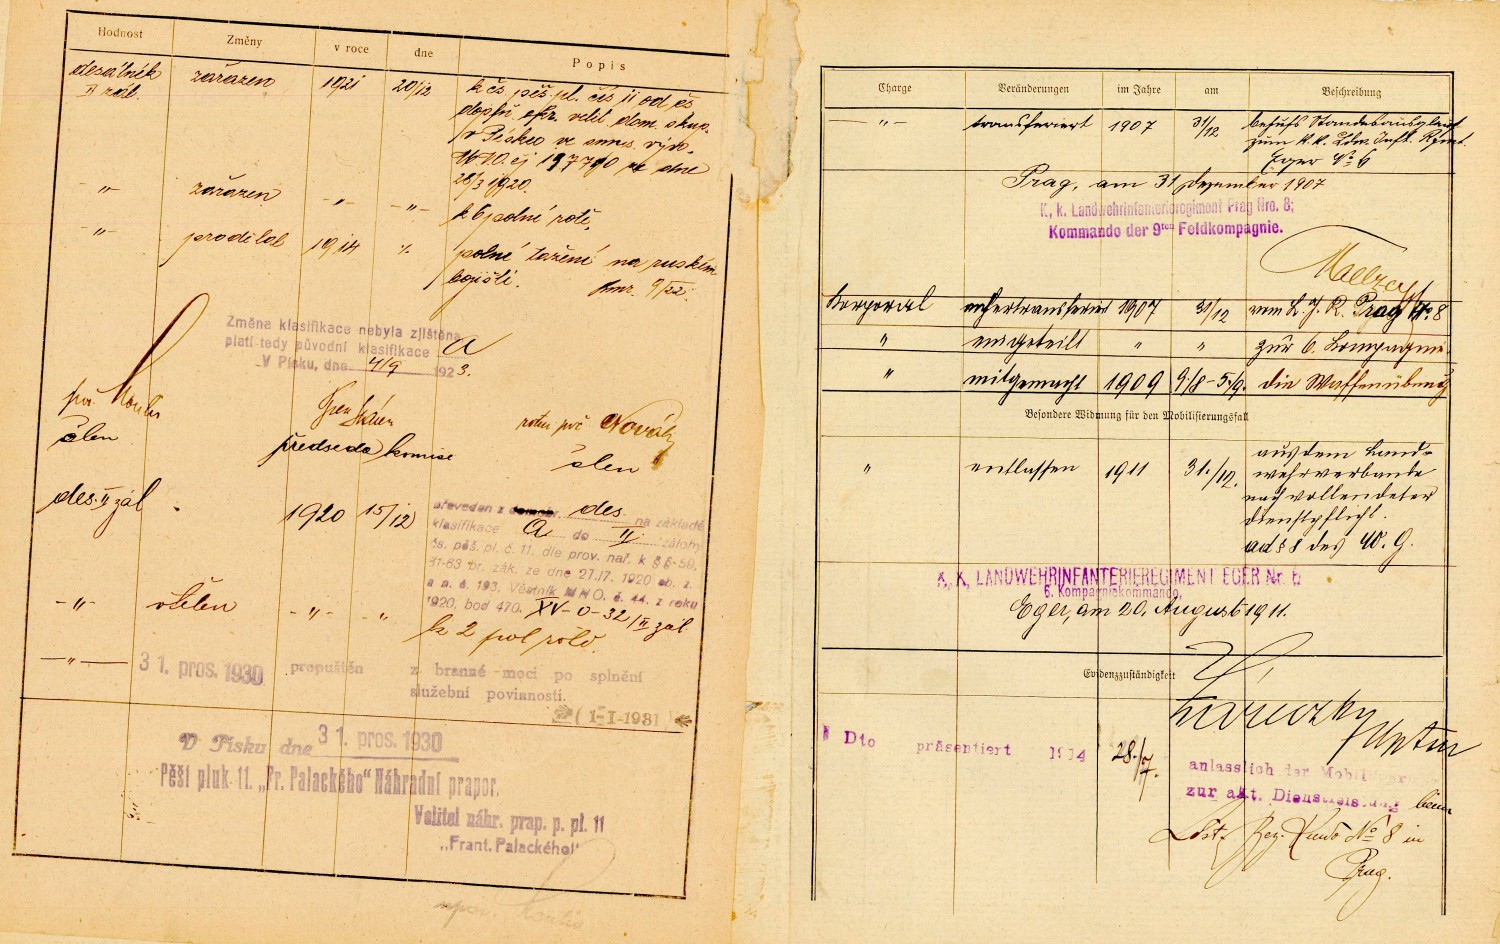 Hodnost Změny v roce dne Popis
desátník zařazen 1921 20/12 k čs. pěš. pl. čís 11 od čs
II zál. doplň. okr. velit. dom. skup.
v Písku ve smys. výn.
28/3 1920.
-„- zařazen -„- -„- k 6 polní rotě,
-„- prodělal 1914 polné tažení na ruském
bojišti. 9/22
Změna klasifikace nebyla zjištěna
platí tedy původní klasifikace A
V Písku, dne 4/9 1923.
Novák
člen předseda komise člen
des. II zál 1920 15/12 převeden z des. na základě
klasifikace A do II zálohy
čs. pěš. pl. č. 11, dle prov. nař. k §§-59,
61-63 br. zák. ze dne 27.IV. 1920 sb. z.
a n. č. 193, Věstník MNO. č. 44. z roku
1920, bod 470. XV-0-32/II zál
-„- včlen -„- „ k 2 pol rotě.
-„- 31. pros. 1930 propuštěn z branné moci po splnění
služební povinnosti.
(1-I-1931)
V Písku dne 31. pros. 1930
Pěší pluk 11. „Fr. Palackého“ Náhradní prapor.
Velitel náhr. prap. p. pl. 11
„Frant. Palackého“
Charge Veränderungen im Jahre am Beschreibung
-„- transferiert 1907 31/12 behufs Standesausgleich
zum k.k. Ldw. Inft. Rgmt.
Eger No 6
Prag, am 31 Dezember 1907
K. k. Landwehrinfanterieregiment Prag Nro. 8;
Kommando der 9ten Feldkompagnie.
Korporal anhertransferiert 1907 31/12 vom L. I. R. Prag No 8
„ eingeteilt „ „ zur 6. Kompagnie.
„ mitgemacht 1909 9./8-5./9. die Waffenübung
Besondere Widmung für den Mobilisierungsfall
„ entlassen 1911 31./12. aus dem Land-
wehrverbande
nach vollendeter
Dienstpflicht.
ad § 8 des W. G.
K. K. LANDWEHRINFANTERIEREGIMENT EGER Nr. 6
6. Kompagniekommando,
Eger, am 20. August 1911.
Evidenzzuständigkeit
Dto präsentiert 1914 28./7. anlasslich der Mobilisierung
zur akt. Dienstleistung beim
Ldst. Bez. Kmdo No 8 in
Prag.